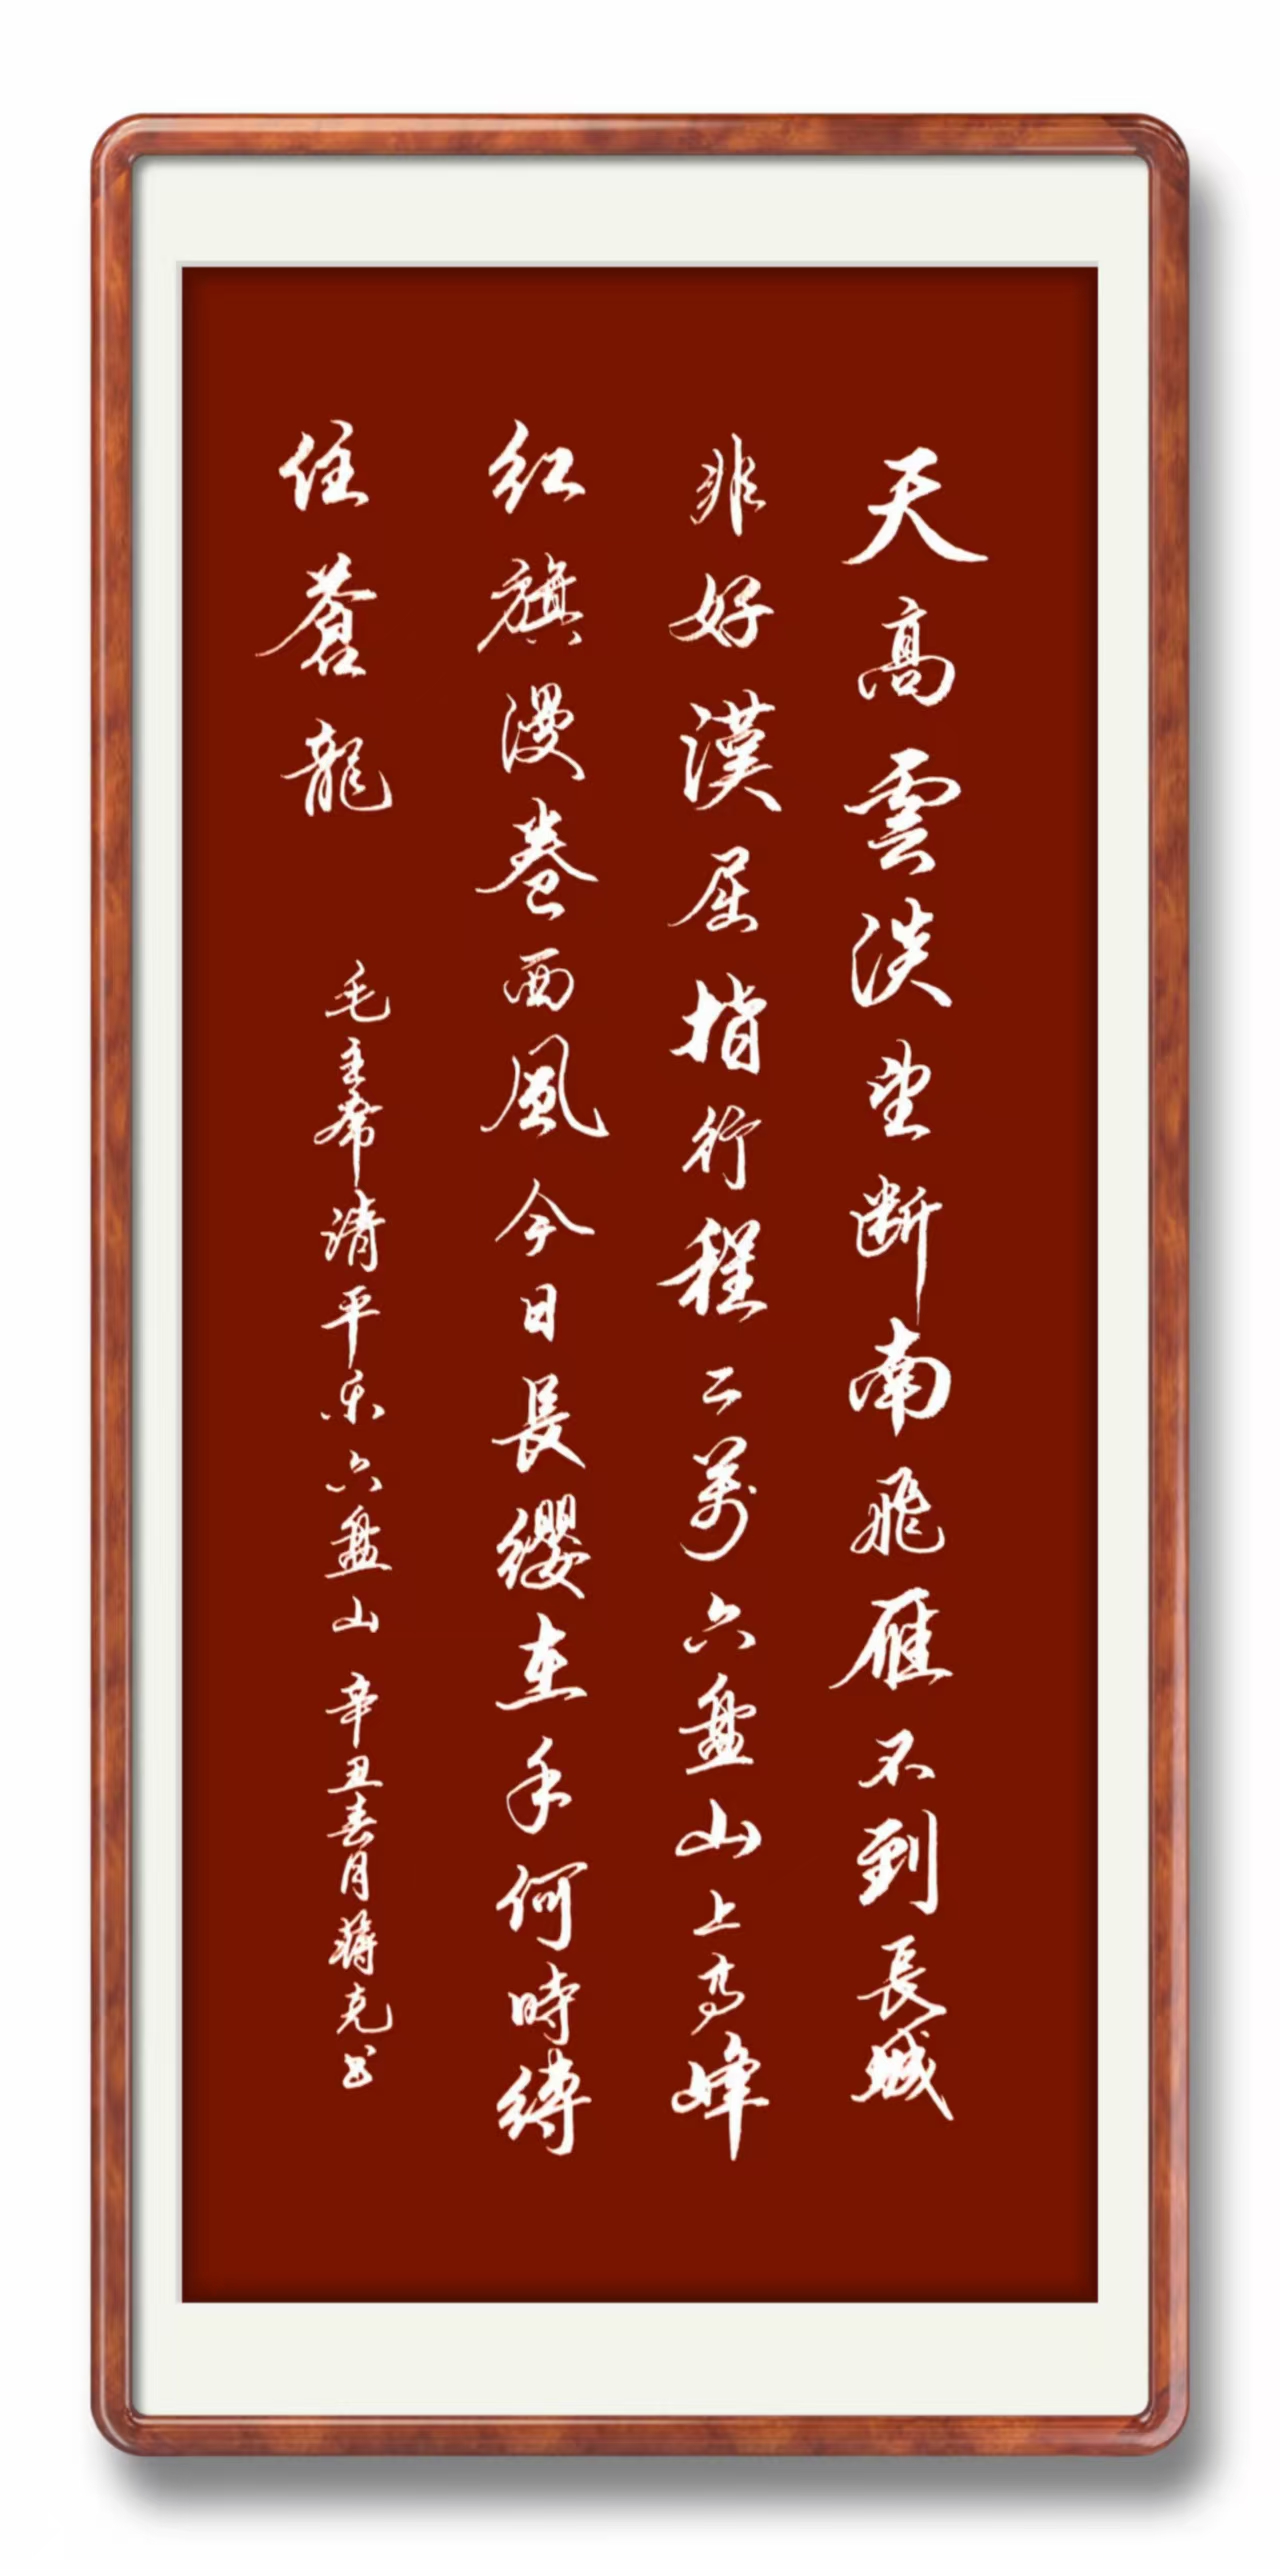 天高雲淡望断南飛雁不到長城
非好漢屈指行程二萬六盤山上高峰
红旗漫卷西風今日長纓在手何時縛
住蒼龍
毛主席清平乐六盤山 辛丑春月蔣克书